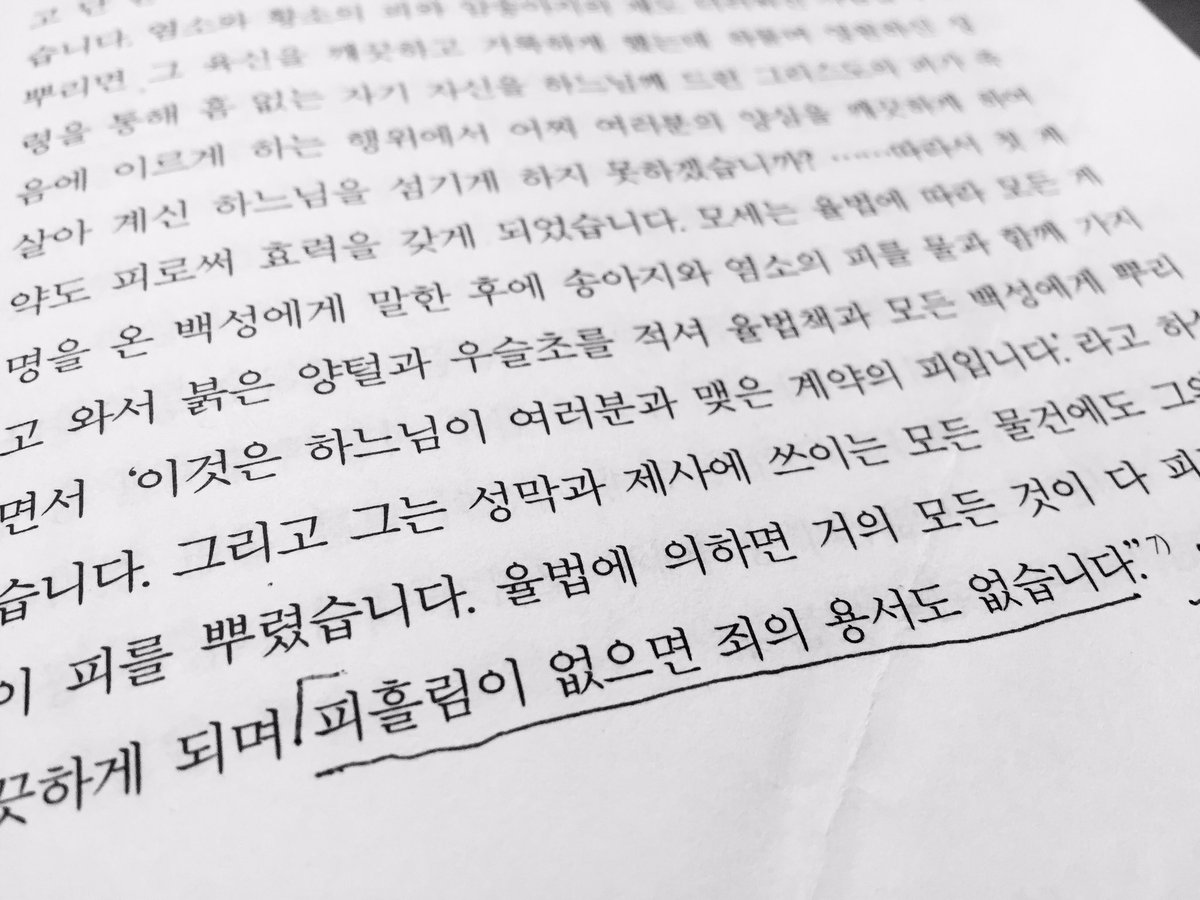 습니다. 염소와 황소의 피와 암송아지의 재도
뿌리면 그 육신을 깨끗하고 거룩하게 했는데 하물며 영원하신 성
령을 통해 흠 없는 자기 자신을 하느님께 드린 그리스도의 피가 죽
음에 이르게 하는 행위에서 어찌 여러분의 양심을 깨끗하게 하여
살아 계신 하느님을 섬기게 하지 못하겠습니까? ……따라서 첫 계
약도 피로써 효력을 갖게 되었습니다. 모세는 율법에 따라 모든 계
명을 온 백성에게 말한 후에 송아지와 염소의 피를 물과 함께 가지
고 와서 붉은 양털과 우슬초를 적셔 율법책과 모든 백성에게 뿌리
면서 ‘이것은 하느님이 여러분과 맺은 계약의 피입니다.’라고 하
습니다. 그리고 그는 성막과 제사에 쓰이는 모든 물건에도 그와
이 피를 뿌렸습니다. 율법에 의하면 거의 모든 것이 다 피
끗하게 되며 피흘림이 없으면 죄의 용서도 없습니다”.7)